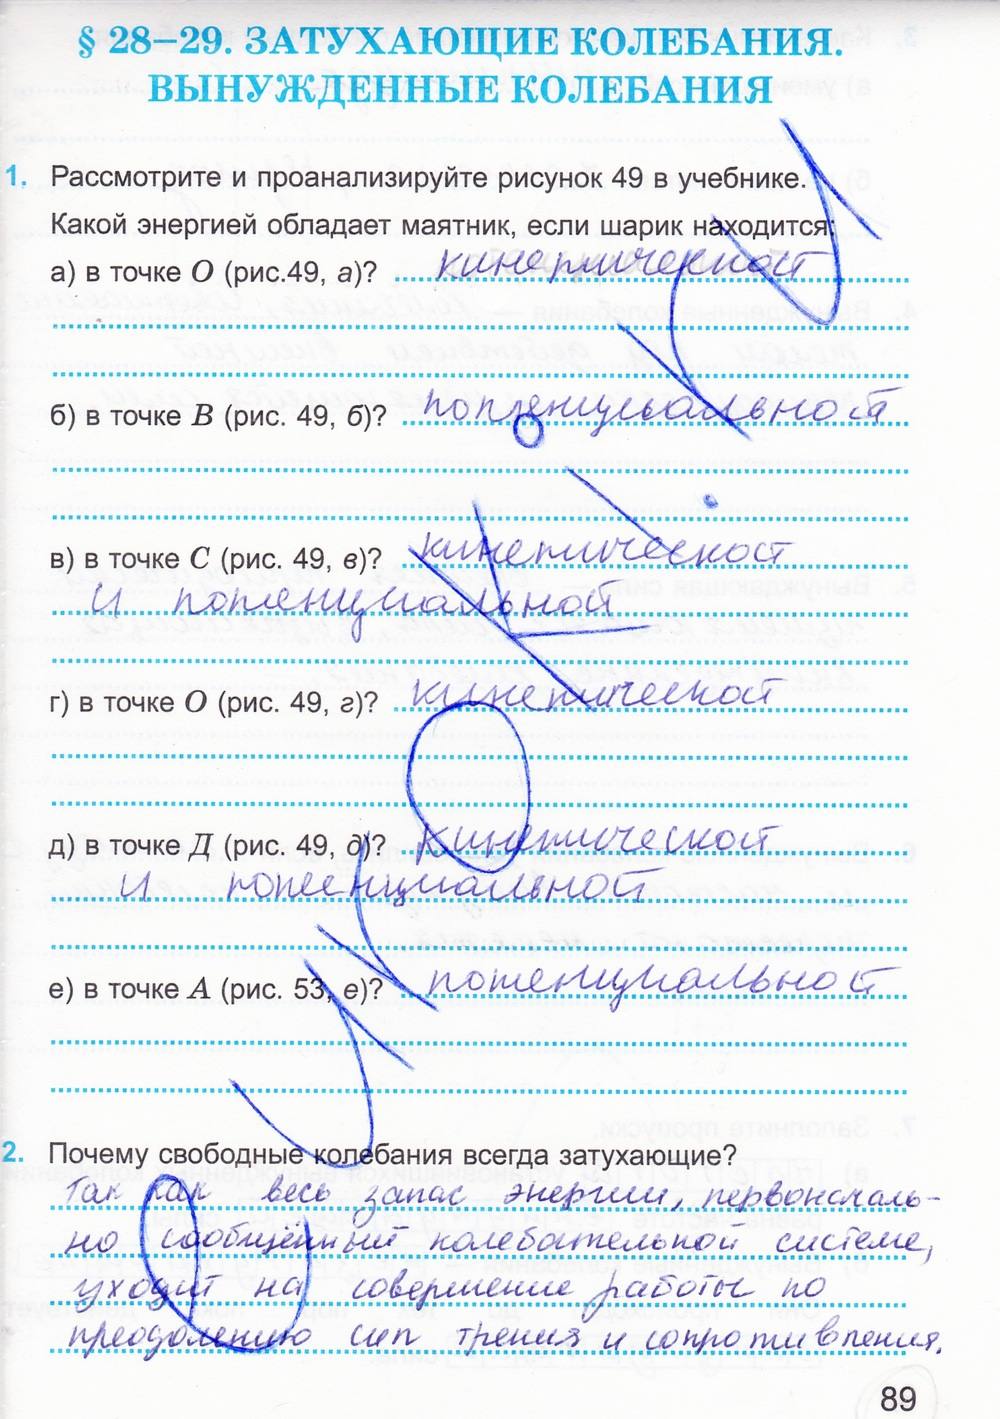 § 28–29. ЗАТУХАЮЩИЕ КОЛЕБАНИЯ.
ВЫНУЖДЕННЫЕ КОЛЕБАНИЯ
1. Рассмотрите и проанализируйте рисунок 49 в учебнике.
Какой энергией обладает маятник, если шарик находится:
а) в точке О (рис.49, а)? кинетической
б) в точке В (рис. 49, б)? потенциальной
в) в точке С (рис. 49, в)? кинетической
и потенциальной
г) в точке О (рис. 49, г)? кинетической
д) в точке Д (рис. 49, д)? кинетической
и потенциальной
е) в точке А (рис. 53, е)? потенциальной
2. Почему свободные колебания всегда затухающие?
Так как весь запас энергии, первоначаль-
но сообщённый колебательной системе,
уходит на совершение работы по
преодолению сил трения и сопротивления.
89